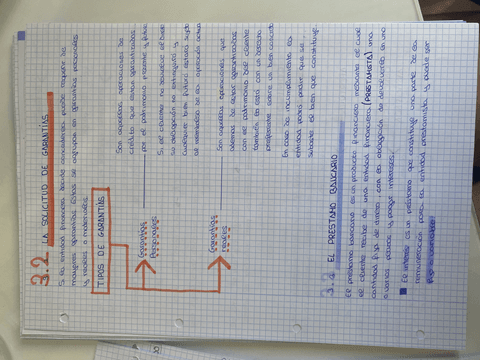 3.2 LA SOLICITUD DE GARANTÍAS
Si la entidad financiera decide concederlo puede requerir la
garantías. Estas se agrupan en garantías personales
y reales o materiales.
TIPOS DE GARANTÍAS
Garantías
Personales
Son aquellas operaciones de
crédito que están garantizadas
por el patrimonio presente y futuro
Si el cliente no devuelve el
su obligación no se extingue y
cualquier bien futuro estará sujeto
Garantías
reales
Son aquellas operaciones que
además de estar garantizadas
con el patrimonio del cliente
también lo está con un derecho
preferente sobre un bien concreto
En caso de incumplimiento la
entidad podrá pedir que se
subaste el bien que constituye
3.3 EL PRÉSTAMO BANCARIO
El préstamo bancario es un producto financiero mediante el cual
el cliente recibe de una entidad financiera (PRESTAMISTA) una
cantidad fija de dinero con la obligación de devolverla en uno
o varios plazos y pagar intereses.
El interés es un préstamo que constituye una parte de la
remuneración para la entidad prestamista y puede ser
fijo o variable